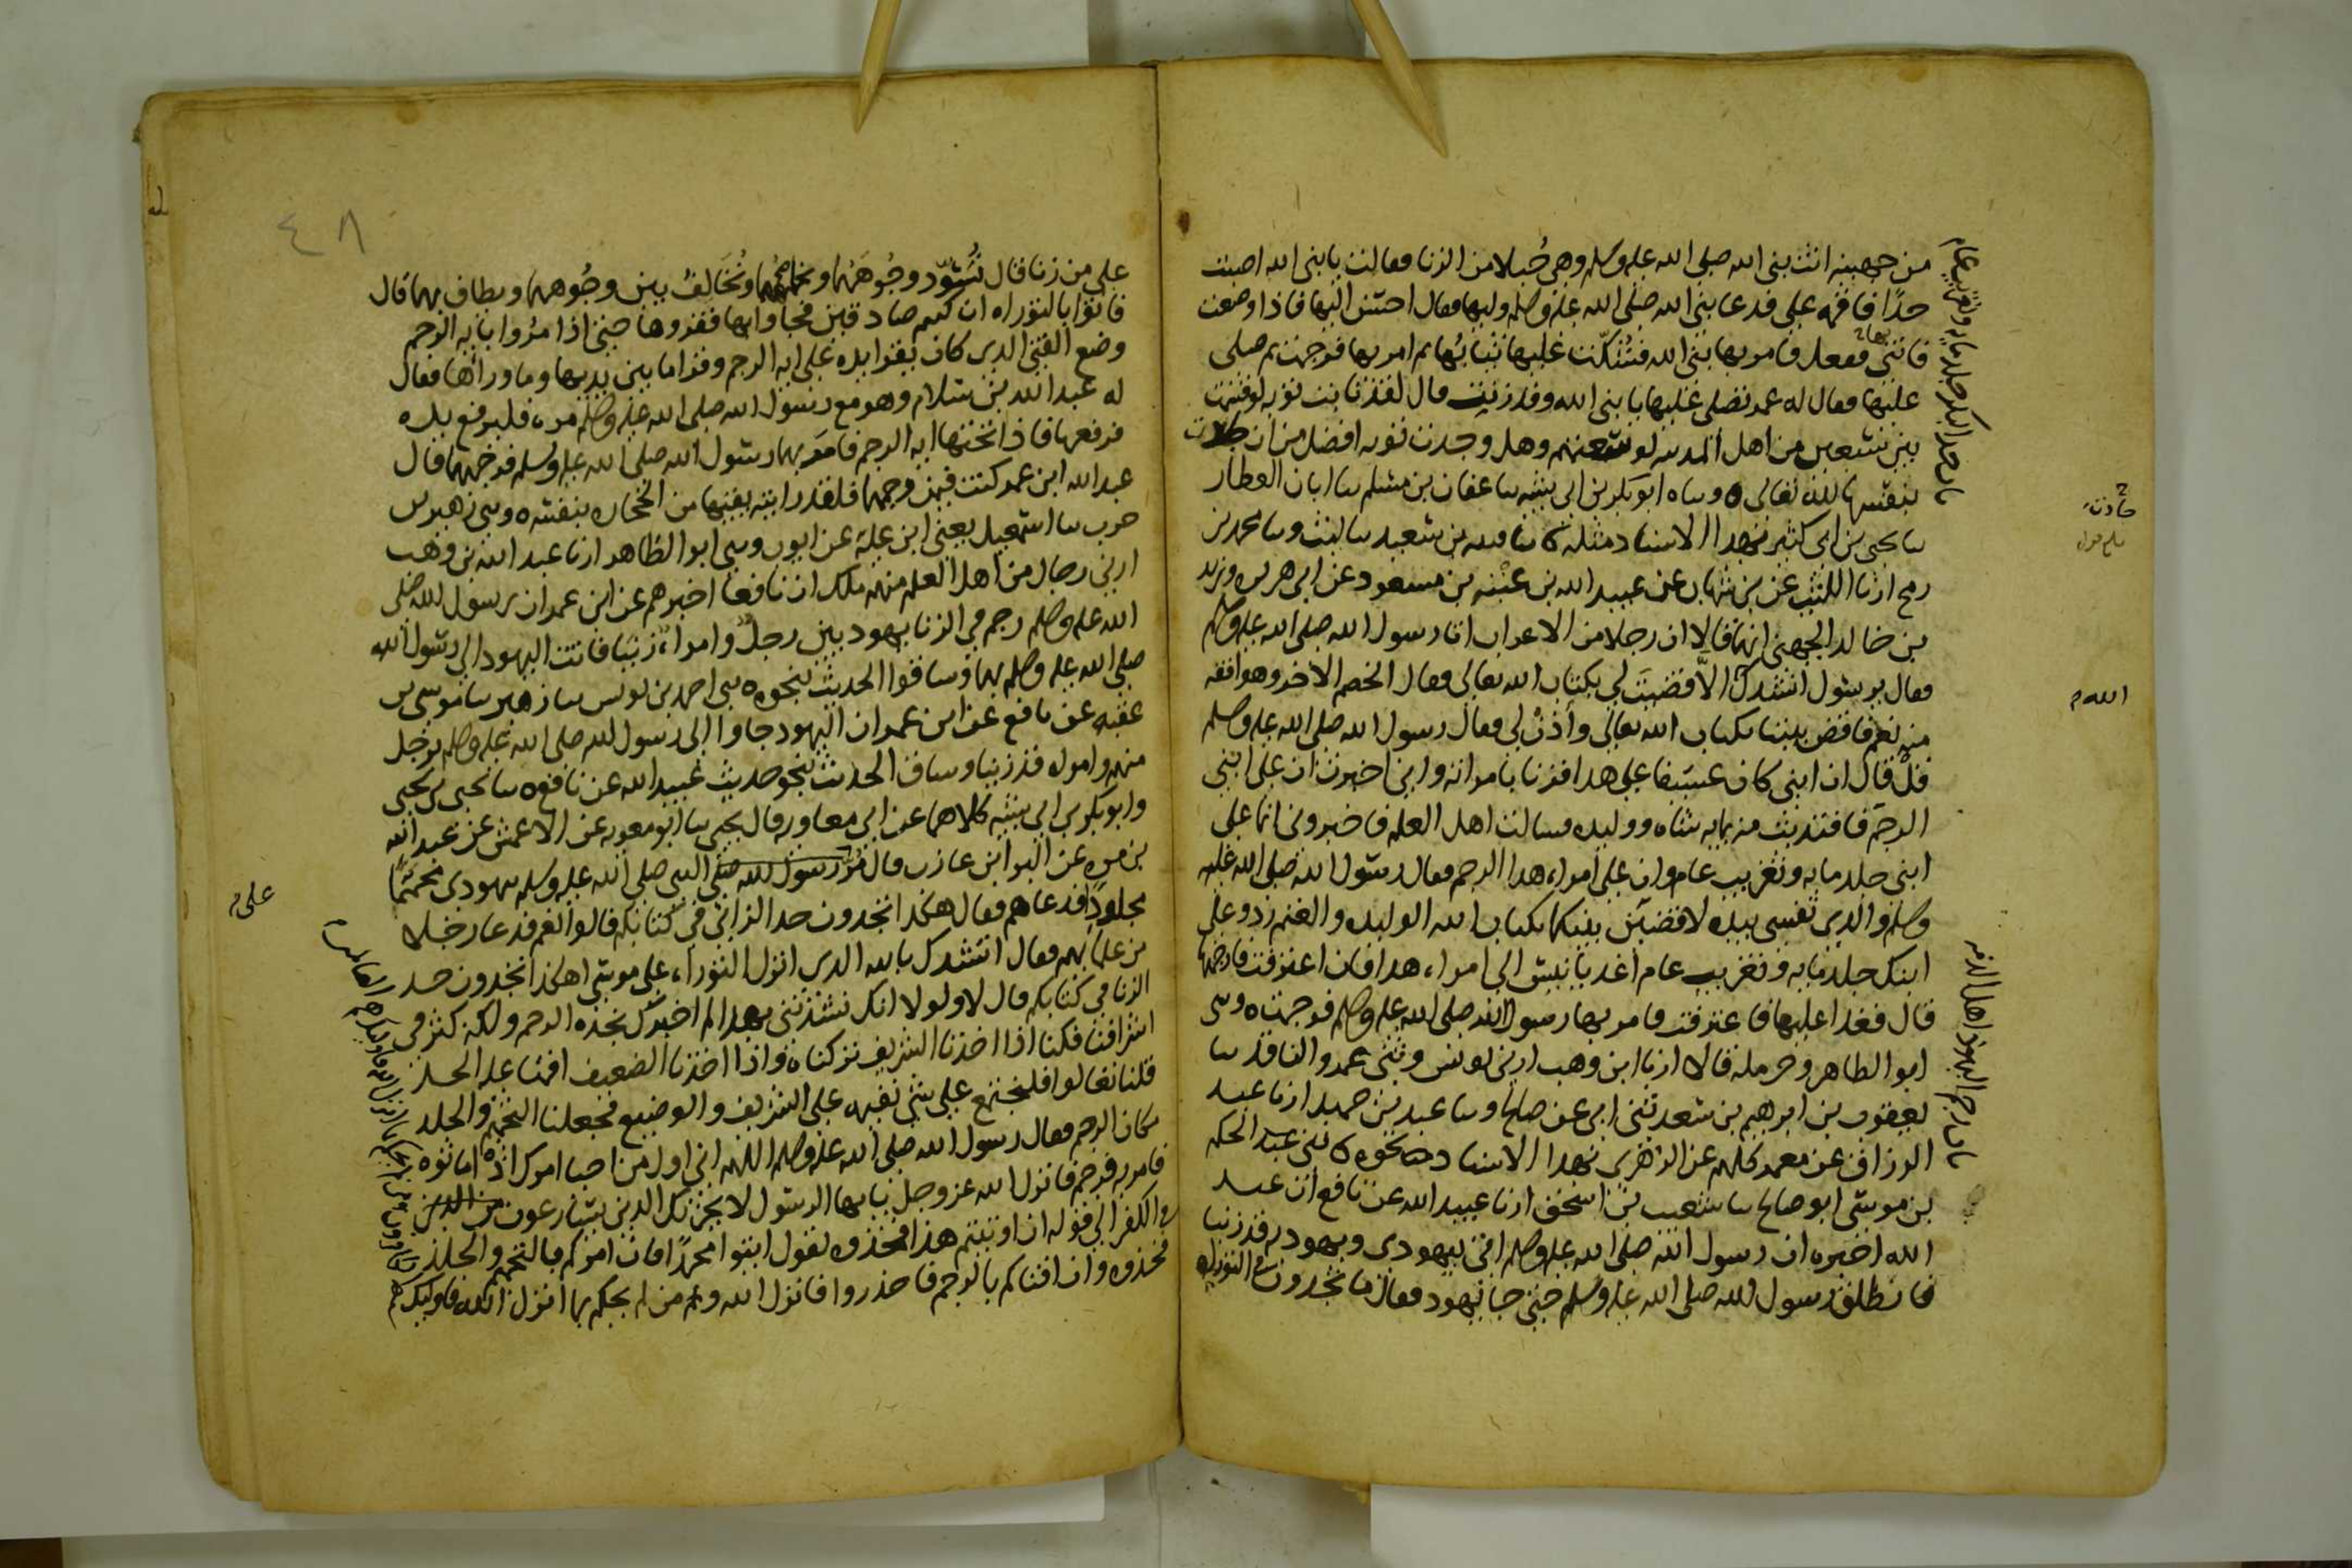 من جهينه اتت نبى الله صلى الله عليه وسلم وهى حُبلا من الزنا فعالت يا نبى الله اصبت
حدًا فاقمه على فدعا نبى الله صلى الله عليه وسلم وليها فعال احسن اليها فاذا وضعت
فاتنى بها ففعل فامر بها نبى الله فشُكّت عليها ثيابُها ثم امر بها فرجمت ثم صلى
عليها فعال له عمر تصلى عليها يا نبى الله وقد زنيت قال لقد تابت توبه لو قسمت
بين سبعين من اهل المدينه لوسعتهم وهل وجدت توبه افضل من ان جادت
بنفسها لله تعالى ه وساه ابو بكر بن ابى شيبه سا عفان بن مسلم سا ابان العطار
سا يحيى بن ابى كثير بهدا الاسناد مثله ه سا قتيبه بن سعيد سا ليث وسا محمد بن
رمح ارنا الليث عن بن شهاب عن عبيد الله بن عتبه بن مسعود عن ابى هريره وزيد
بن خالد الجهنى انهما قالا ان رجلا من الاعراب اتا رسول الله صلى الله عليه وسلم
فعال يرسول انشدك الاّ قضيتَ لى بكتاب الله تعالى فعال الخصم الاخر وهو افقه
منه نعم فاقض بيننا بكتاب الله تعالى وأذنْ لى فعال رسول الله صلى الله عليه وسلم
قلْ قال ان ابنى كان عسيفا على هدا فزنا بامراته وانى اخبرت ان على ابنى
الرجم فافتديت منه بمايه شاه ووليده فسالت اهل العلم فاخبرونى انما على
ابنى جلد مايه وتغريب عام وان على امراه هدا الرجم فعال رسول الله صلى الله عليه
وسلم والذى نفسى بيده لاقضين بينكما بكتاب الله الوليده والغنم رد وعلى
ابنك جلد مايه وتغريب عام اغد يا نيس الى امراه هدا فان اعترفت فارجمها
قال فغدا عليها فاعترفت فامر بها رسول الله صلى الله عليه وسلم فرجمت ه وسى
ابو الطاهر وحرمله قالا ارنا ابن وهب ارنى يونس وثنى عمرو الناقد سا
يعقوب بن ابرهيم بن سعد ثنى ابى عن صالح وسا عبد بن حميد ارنا عبد
الرزاق عن معمر كلهم عن الزهرى بهدا الاسناد نحوه ه ثنى عبد الحكم
بن موسى ابو صالح سا شعيب بن اسحق ارنا عبيد الله عن نافع ان عبد
الله اخبره ان رسول الله صلى الله عليه وسلم اتى بيهودى ويهوديه قد زنيا
فانطلق رسول الله صلى الله عليه وسلم حتى جا يهود فعال ما تجدون فى التوراه
باب حد البكر جلد مايه وتغريب عام
باب رجم اليهود اهل الذمه
جادت
الله
٤٨
على من زنا قال نُسوّد وجُوهَهُما ونحملهما ونُخَالف بين وجُوههما ويطاف بهما قال
فاتوا بالتوراه ان كنتم صادقين فجاوا بها فقروها حتى اذا مرُوا بايه الرجم
وضع الفتى الدى كان يقرا يده على ايه الرجم وقرا ما بين يديها وما وراها فعال
له عبد الله بن سلام وهو مع رسول الله صلى الله عليه وسلم مره فليرفع يده
فرفعها فاذا تحتها ايه الرجم فامر بهما رسول الله صلى الله عليه وسلم فرجمهما قال
عبد الله ابن عمر كنت فيمن رجمهما فلقد رايته يقيها من الحجاره بنفسه ه وسى زهير بن
حرب سا اسمعيل يعنى ابن علية عن ايوب وسى ابو الطاهر ارنا عبد الله بن وهب
ارنى رجال من اهل العلم منهم ملك ان نافعا اخبرهم عن ابن عمر ان رسول الله صلى
الله عليه وسلم رجم فى الزنا يهوديين رجلًا وامراه زنيا فاتت اليهود الى رسول الله
صلى الله عليه وسلم بهما وساقوا الحديث بنحوه ه سى احمد بن يونس سا زهير سا موسى بن
عقبه عن نافع عن ابن عمر ان اليهود جاوا الى رسول الله صلى الله عليه وسلم برجل
منهم وامراه قد زنيا وساق الحديث بنحو حديث عبيد الله عن نافع ه سا يحيى بن يحيى
وابو بكر بن ابى شيبه كلاهما عن ابى معاويه قال يحيى سا ابو معويه عن الاعمش عن عبد الله
بن مره عن البرا بن عازب قال مُرَّ رسول الله صلى النبى صلى الله عليه وسلم بيهودى محممًا
مجلودٍ فدعاهم فعال هكذا تجدون حد الزانى فى كتابكم قالوا نعم فدعا رجلا
من علمايهم فعال انشدك بالله الدى انزل التوراه على موسى اهكذا تجدون حد
الزنا فى كتابكم قال لا ولولا انك نشدتنى بهدا لم اخبرك نجده الرجم ولكنه كثر فى
اشرافنا فكنا اذا اخذنا الشريف تركناه واذا اخذنا الضعيف اقمنا عليه الحد
قلنا تعالوا فلنجتمع على شى نقيمه على الشريف والوضيع فجعلنا التحميم والجلد
مكان الرجم فعال رسول الله صلى الله عليه وسلم اللهم انى اول من احيا امرك اذه اماتوه
فامر به فرجم فانزل الله عز وجل يا ايها الرسول لا يحزنك الدين يسارعون من الدين
فى الكفر الى قوله ان اوتيتم هذا فخذوه يقول ايتوا محمدًا فان امركم بالتحميم والجلد
فخذوه وان افتاكم بالرجم فاحذروا فانزل الله ومن لم يحكم بما انزل الله فاوليك هم
على